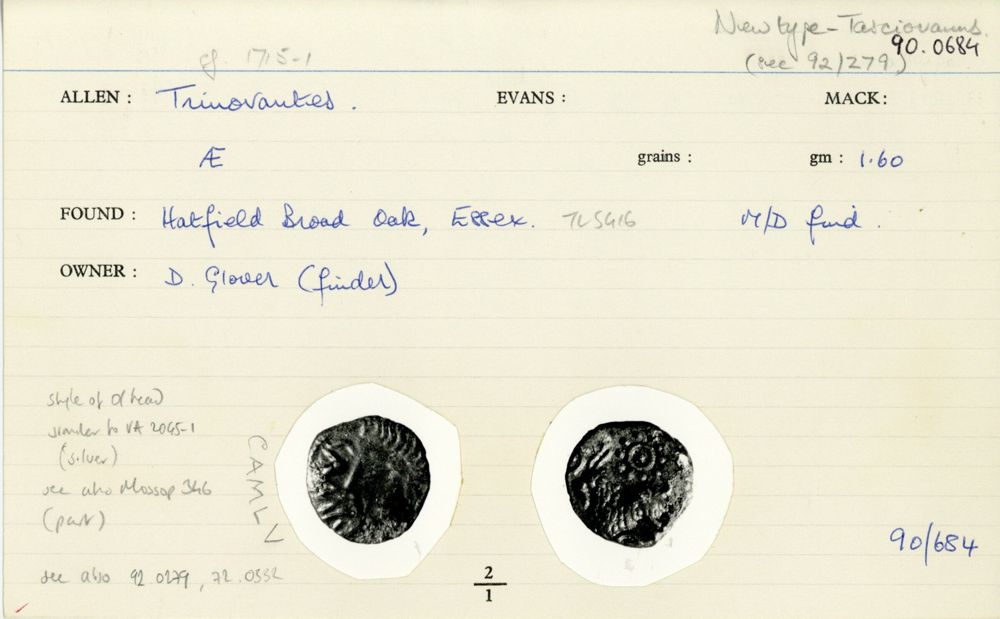 New type - Tasciovanus.
90.0684
cf. 1715-1
(see 92/279)
ALLEN : Trinovantes. EVANS : MACK:
Æ grains : gm : 1.60
FOUND : Hatfield Broad Oak, Essex. TL5416 M/D find.
OWNER : D. Glover (finder)
style of O/head
similar to VA 2045-1
(silver)
see also Mossop 346
(part)
CAMLV
90/684
see also 92.0279, 72.0332
2
1